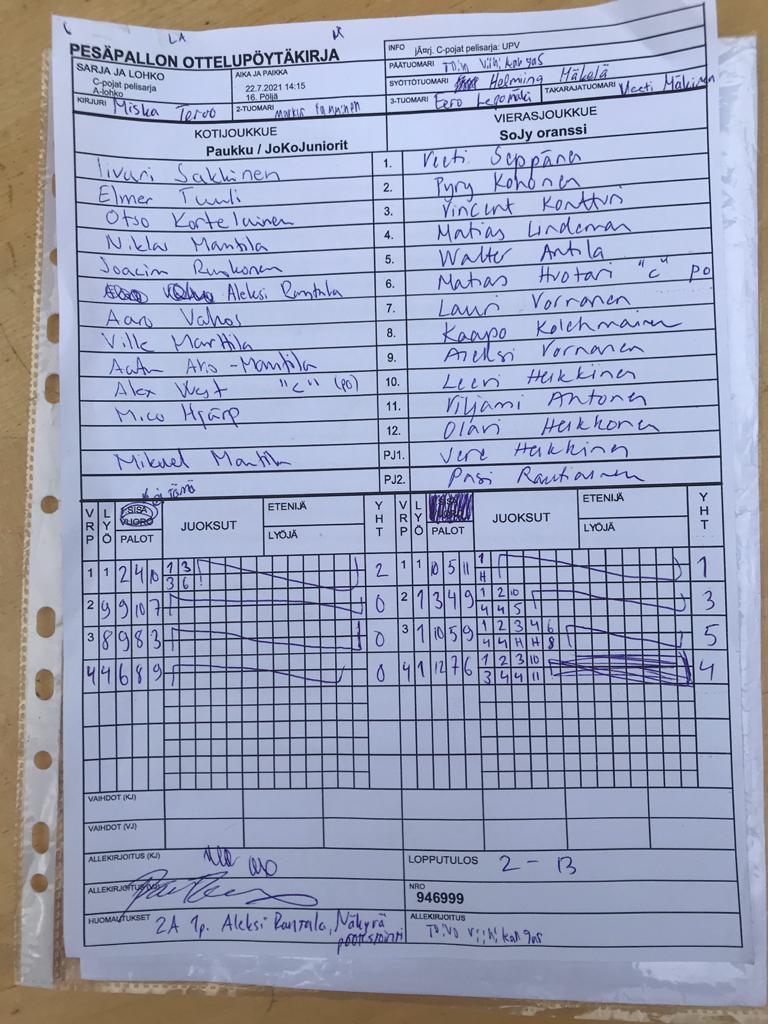 LA
PESÄPALLON OTTELUPÖYTÄKIRJA
SARJA JA LOHKO
C-pojat pelisarja
A-lohko
AIKA JA PAIKKA
22.7.2021 14:15
16. Pöljä
KIRJURI Miska Tervo
2-TUOMARI
INFO jÄ¤rj. C-pojat pelisarja: UPV
PÄÄTUOMARI Toivo Viihikangas
SYÖTTÖTUOMARI Helmiing Mäkelä
3-TUOMARI Eero Lepomäki
TAKARAJATUOMARI Veeti Mäkinen
KOTIJOUKKUE
Paukku / JoKoJuniorit
VIERASJOUKKUE
SoJy oranssi
Iivari Sakkinen 1. Veeti Seppänen
Elmer Tuuli 2. Pyry Kohonen
Otso Kortelainen 3. Vincent Kontturi
Niklas Mantila 4. Matias Lindeman
Joacim Ruokonen 5. Walter Antila
Aleksi Rantala 6. Matias Huotari "C" po
Aaro Vahos 7. Lauri Vornanen
Ville Marttila 8. Kaapo Kolehmainen
Aatu Aro-Mantila 9. Aleksi Vornanen
Alex West "C" (po) 10. Leevi Heikkinen
Mico Hjärp 11. Viljami Antonen
12. Olavi Heikkonen
Mikael Mantila PJ1. Vere Heikkinen
PJ2. Pasi Rautiainen
VRP LYÖ SISÄ VUORO PALOT JUOKSUT ETENIJÄ LYÖJÄ YHT VRP LYÖ PALOT JUOKSUT ETENIJÄ LYÖJÄ YHT
1 1 2 4 10 1 3 2 1 1 10 5 11 1 1
3 6 H
2 9 9 10 7 0 2 1 3 4 9 1 2 10 3
4 4 5
3 8 9 8 3 0 3 1 10 5 9 1 2 3 4 6 5
4 4 H H 8
4 4 6 8 9 0 4 1 12 7 6 1 2 3 10 4
3 4 4 11
VAIHDOT (KJ)
VAIHDOT (VJ)
ALLEKIRJOITUS (KJ)
LOPPUTULOS 2 - 13
ALLEKIRJOITUS (VJ)
NRO
946999
HUOMAUTUKSET 2A 1p. Aleksi Rantala, Näkyrä
ALLEKIRJOITUS Toivo Viihikangas